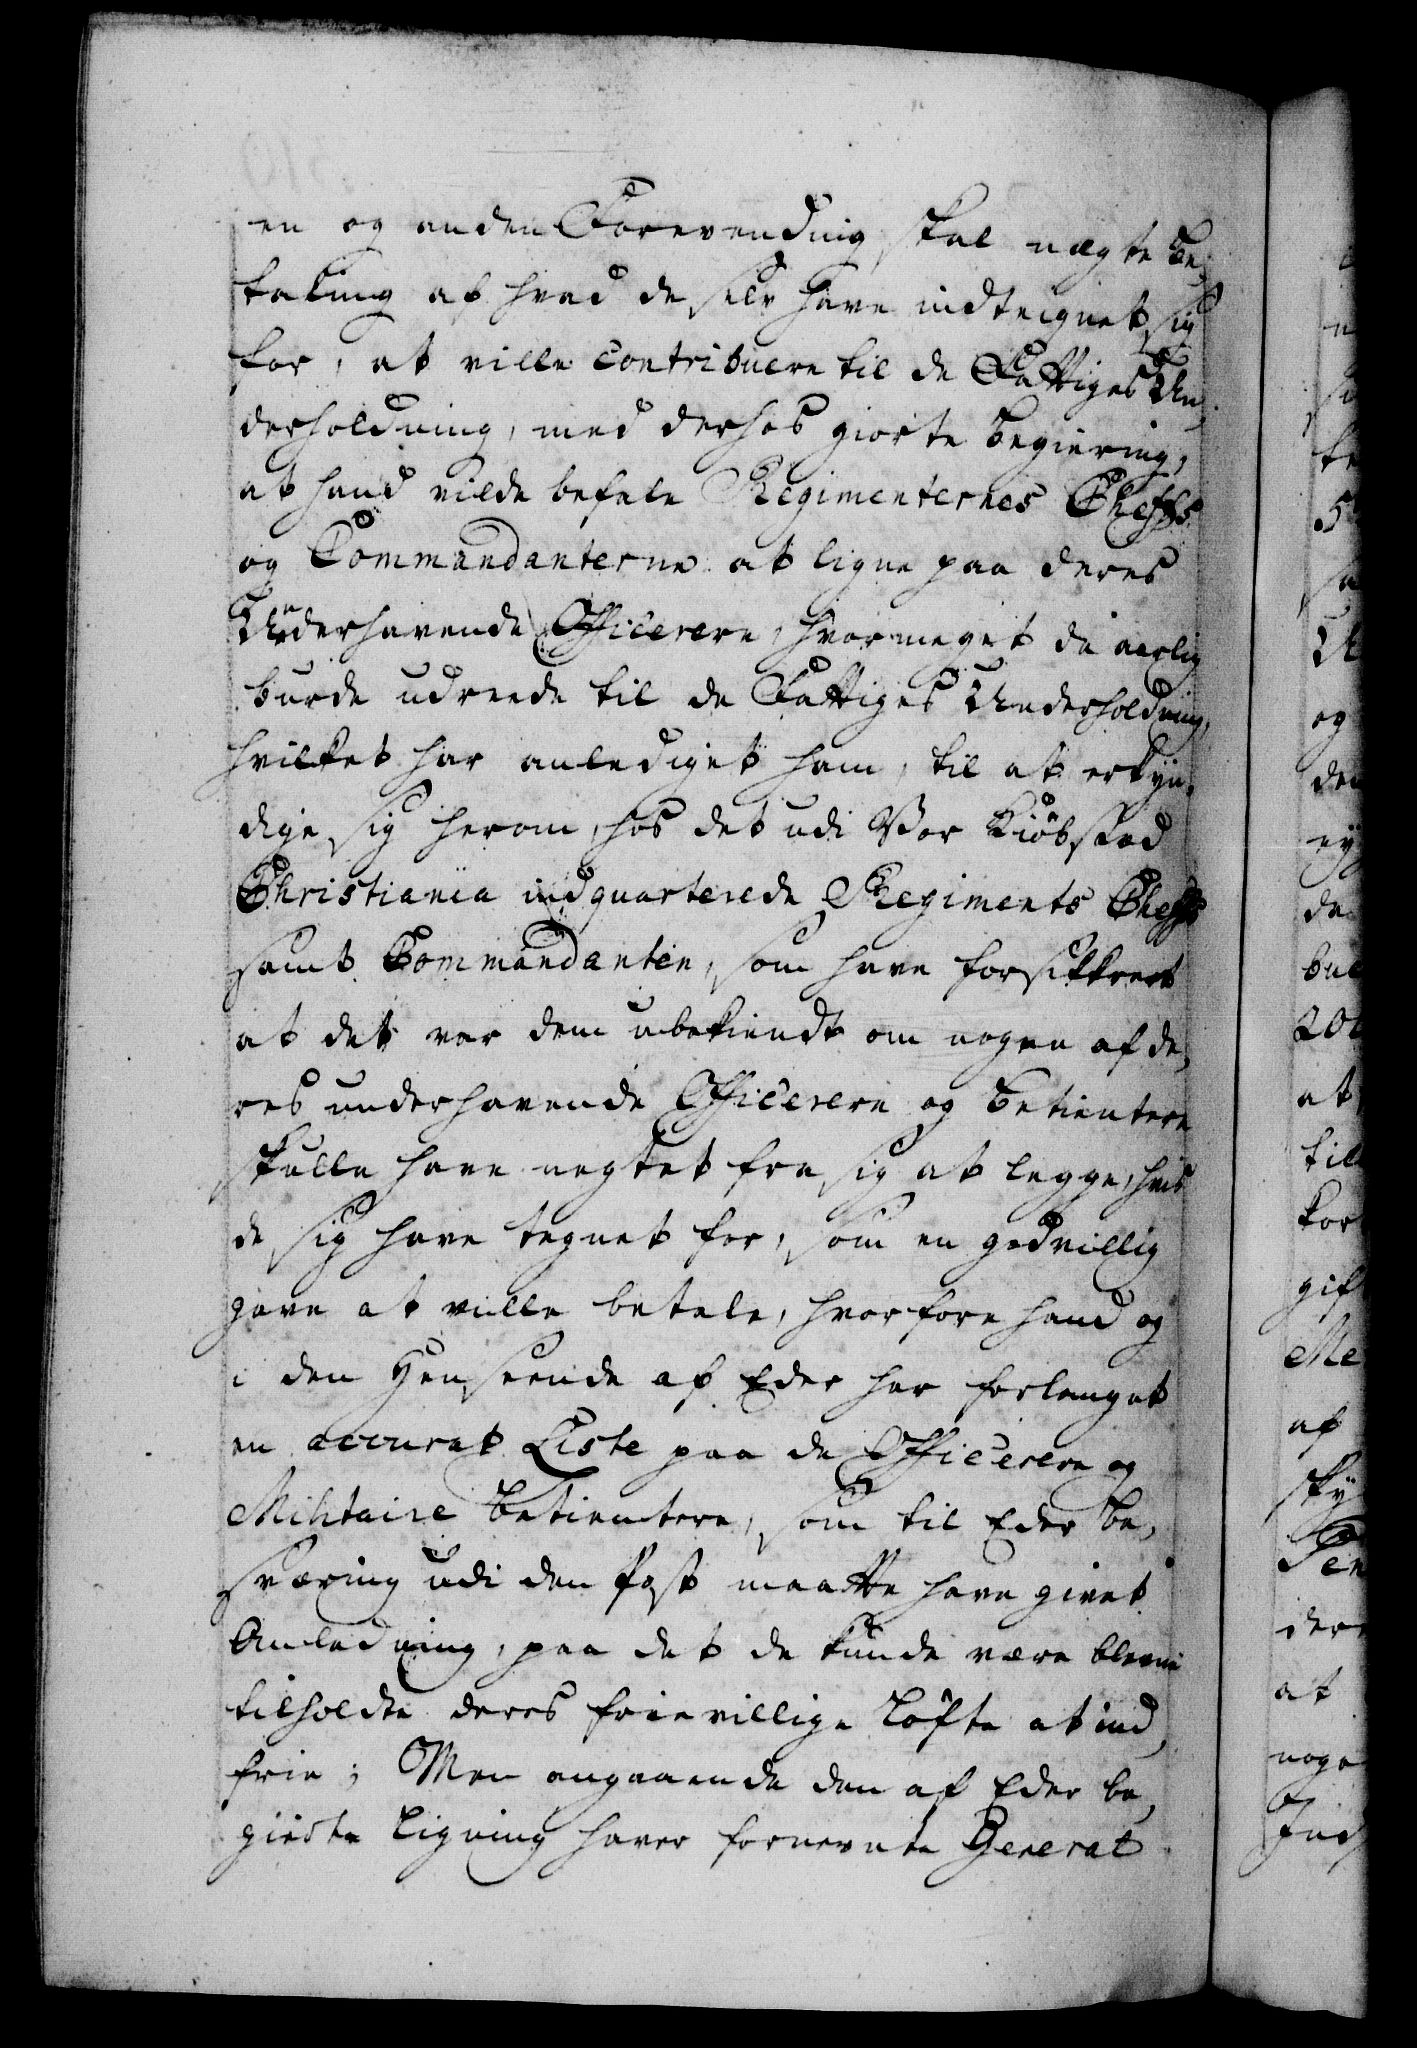 en og anden Forevending skal nægte Be,
taling af hvad de selv have indteignet sig
for, at ville contribuere til de Fattiges Un,
derholdning, med derhos giorte Begiering,
at hand vilde befale Regimenternes Cheffs
og Commandanterne at ligne paa deres
Underhavende Officerere, hvormeget de aarlig
burde udreede til de Fattiges Underholdning,
hvilket har anlediget ham, til at erkyn,
dige sig herom, hos det udi Vor Kiöbstad
Christiania indquarterede Regiments Cheffs
samt Commandanten, som have forsikkret
at det var dem ubekiendt om nogen af de,
res underhavende Officerere og Betientere
skulle have negtet fra sig at legge, hvis
de sig have tegnet for, som en godvillig
gave at ville betale, hvorfore hand og
i den Henseende af Eder har forlanget
en accurat Liste paa de Officerere og
Militaire Betientere, som til Eders Be,
sværing udi den Post maatte have givet
Anledning, paa det de kunde være blevne
tilholdte deres frievillige Löfte at ind,
frie; Men angaaende den af Eder be,
gierte Ligning haver fornevnte General